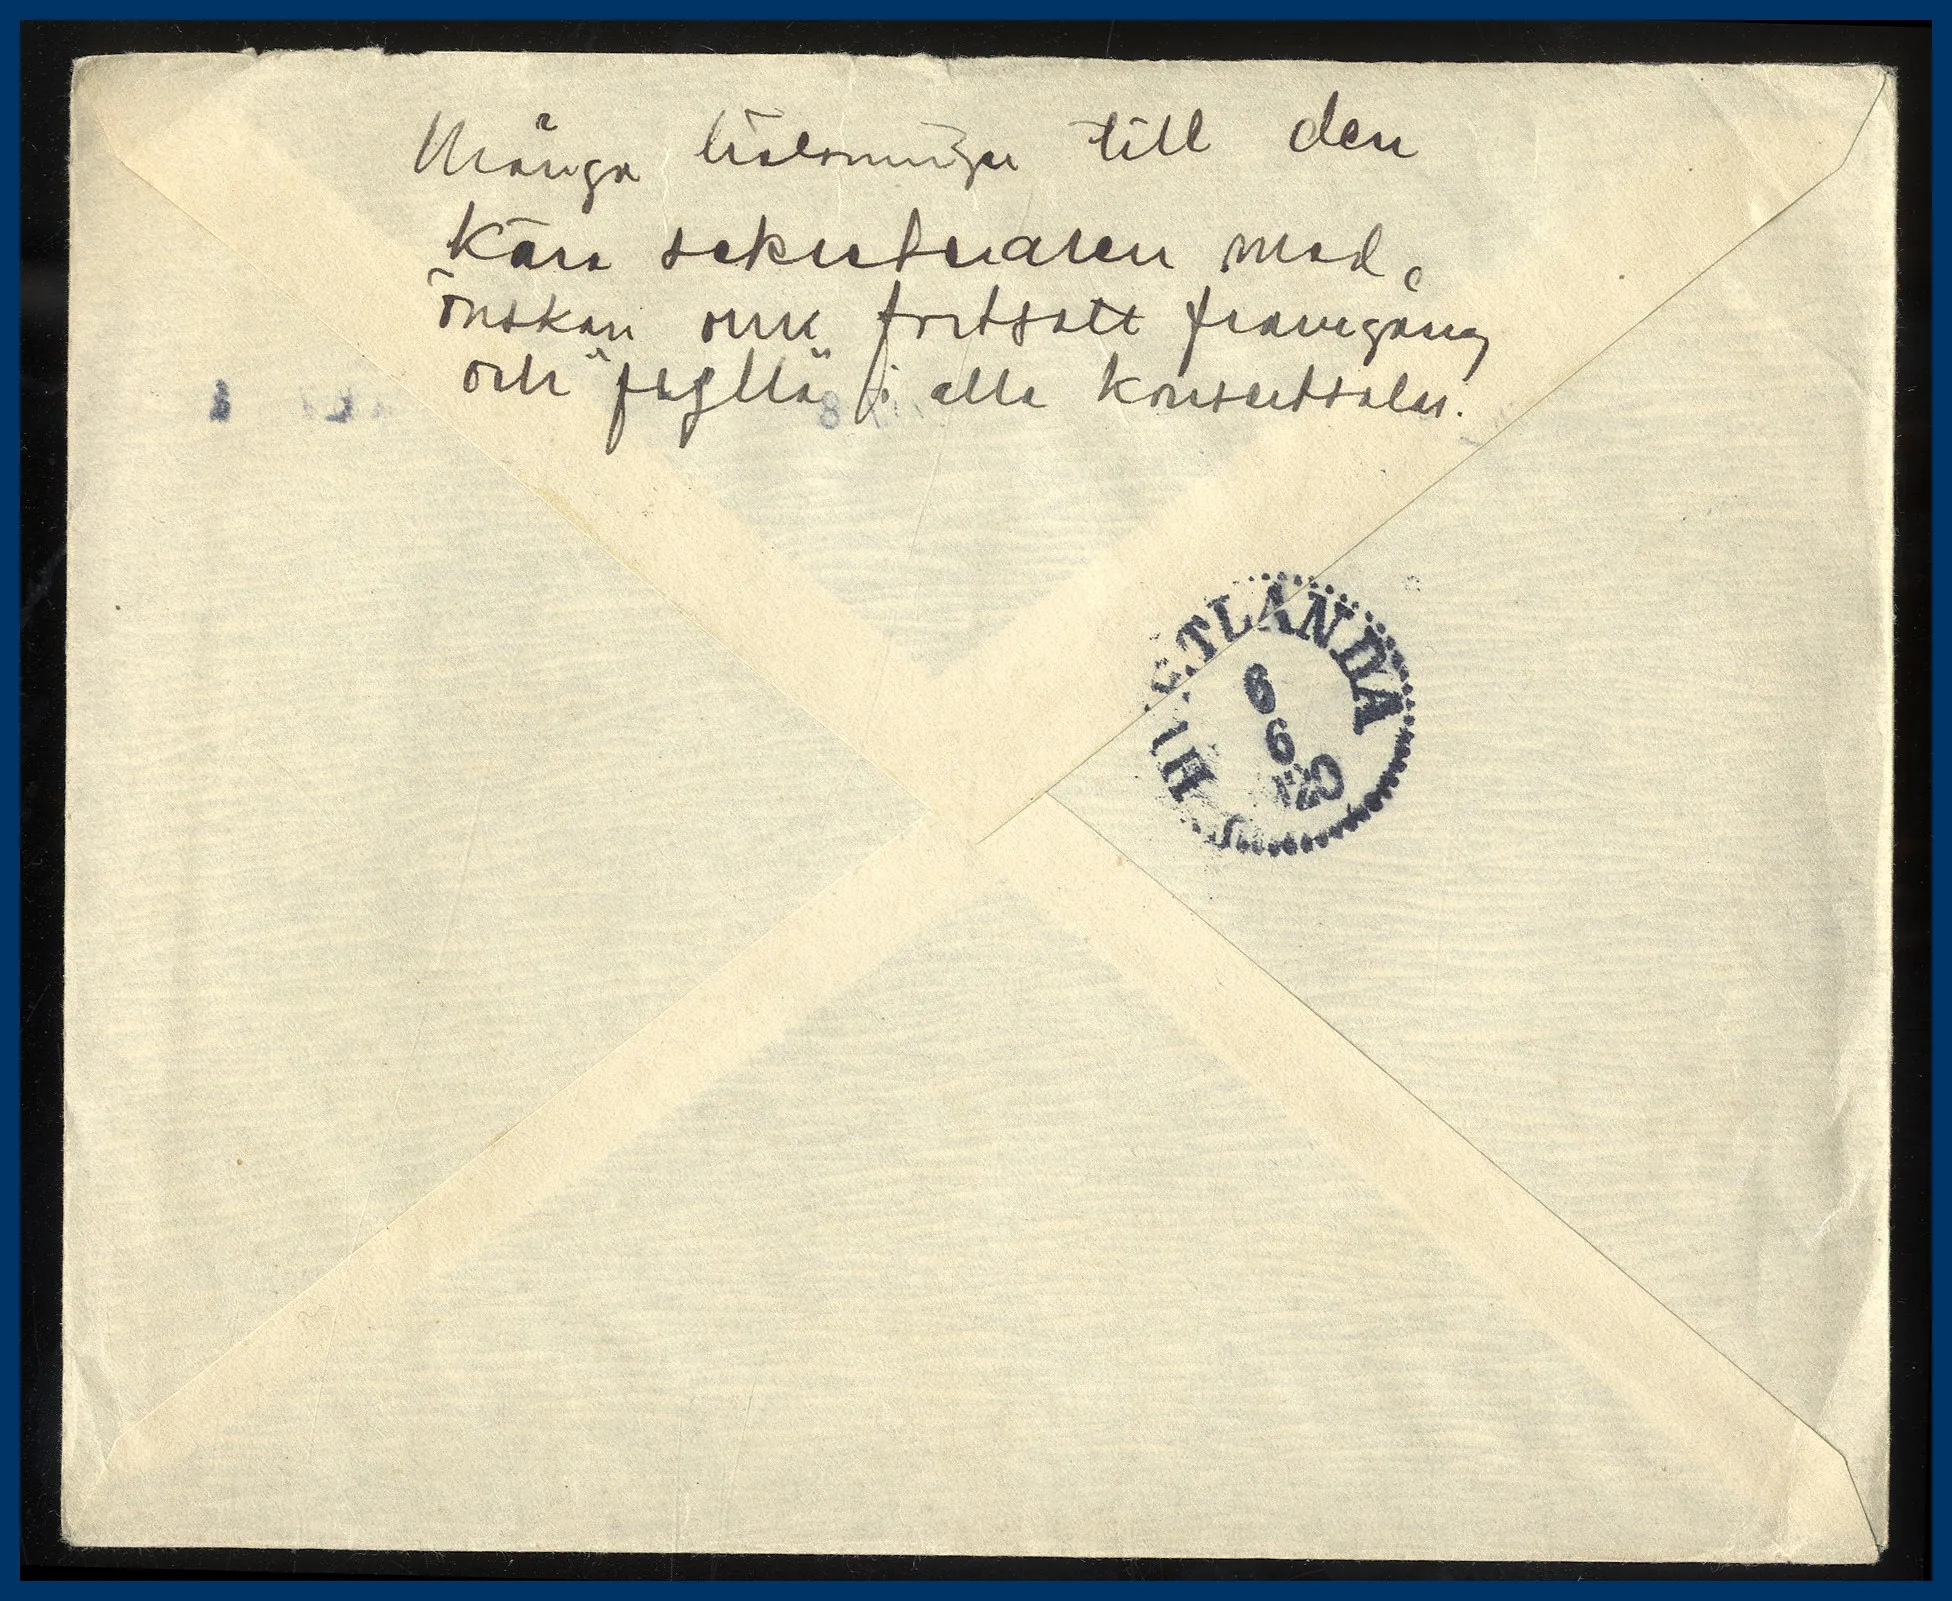 Många hälsningar till den
kära sekreteraren med
önskan om fortsatt framgång
och i alla konsertsalar.
HULTLANDA
6
6
20